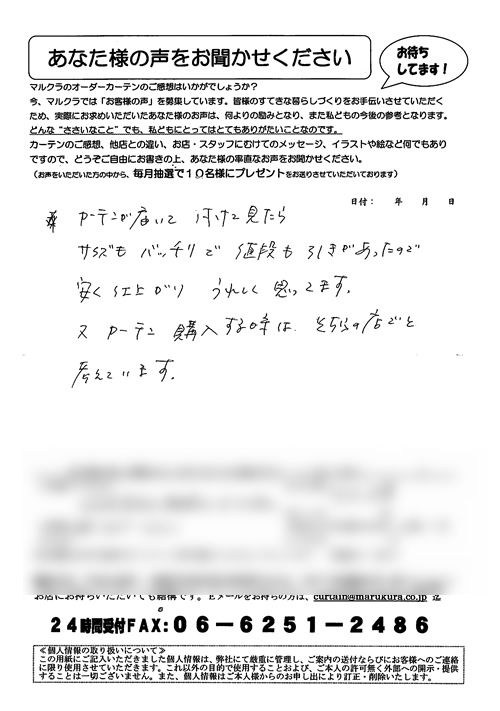 あなた様の声をお聞かせください
お待ち
してます！
マルクラのオーダーカーテンのご感想はいかがでしょうか？
今、マルクラでは「お客様の声」を募集しています。皆様のすてきな暮らしづくりをお手伝いさせていただく
ため、実際にお求めいただいたあなた様のお声は、何よりの励みとなり、また私どもの今後の参考となります。
どんな“ささいなこと”でも、私どもにとってはとてもありがたいことなのです。
カーテンのご感想、他店との違い、お店・スタッフにむけてのメッセージ、イラストや絵など何でもあり
ですので、どうぞご自由にお書きの上、あなた様の率直なお声をお聞かせください。
（お声をいただいた方の中から、毎月抽選で１０名様にプレゼントをお送りさせていただいております）
日付： 年 月 日
カーテンが届いて 付けて見たら
サイズも バッチリで 値段も 引きがあったので
安く仕上がり うれしく思ってます。
又 カーテン 購入する時は そちらの店でと
考えています。
お店にお持ちいただいても結構です。Eメールをお持ちの方は、curtain@marukura.co.jp 迄
２４時間受付FAX：０６－６２５１－２４８６
≪個人情報の取り扱いについて≫
この用紙にご記入いただきました個人情報は、弊社にて厳重に管理し、ご案内の送付ならびにお客様へのご連絡
に限り使用させていただきます。これ以外の目的で使用することおよび、ご本人の許可無く外部への開示・提供
することは一切ございません。また、個人情報はご本人様からのお申し出により訂正・削除いたします。